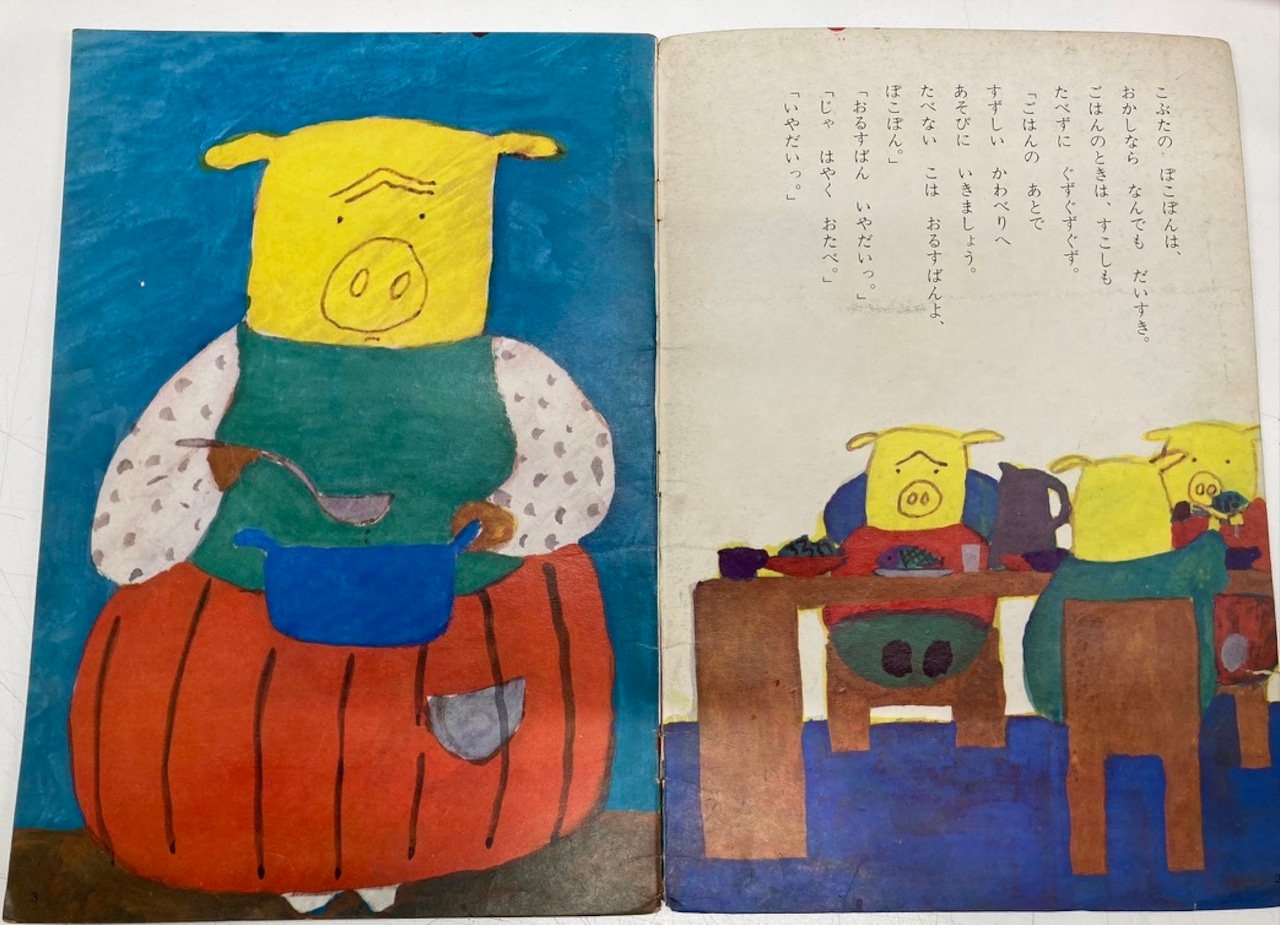 こぶたの ぽこぽんは、
おかしなら なんでも だいすき。
ごはんのときは、すこしも
たべずに ぐずぐずぐず。
「ごはんの あとで
すずしい かわべりへ
あそびに いきましょう。
たべない こは おるすばんよ、
ぽこぽん。」
「おるすばん いやだいっ。」
「じゃ はやく おたべ。」
「いやだいっ。」
3